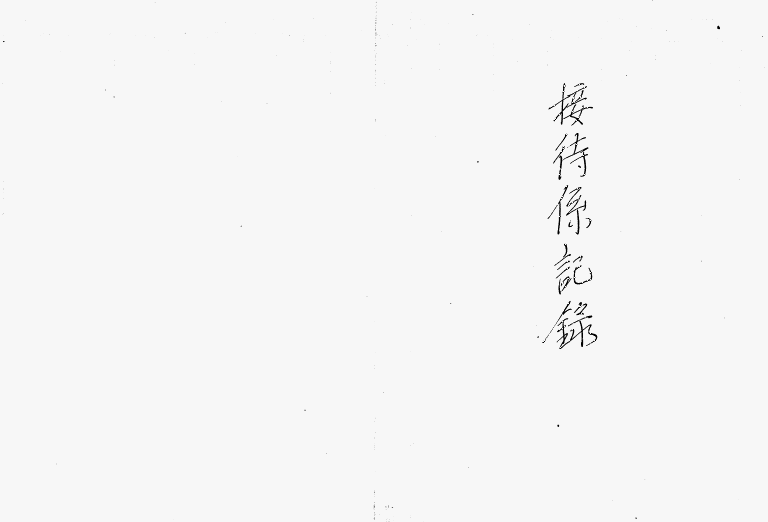 接待係記録